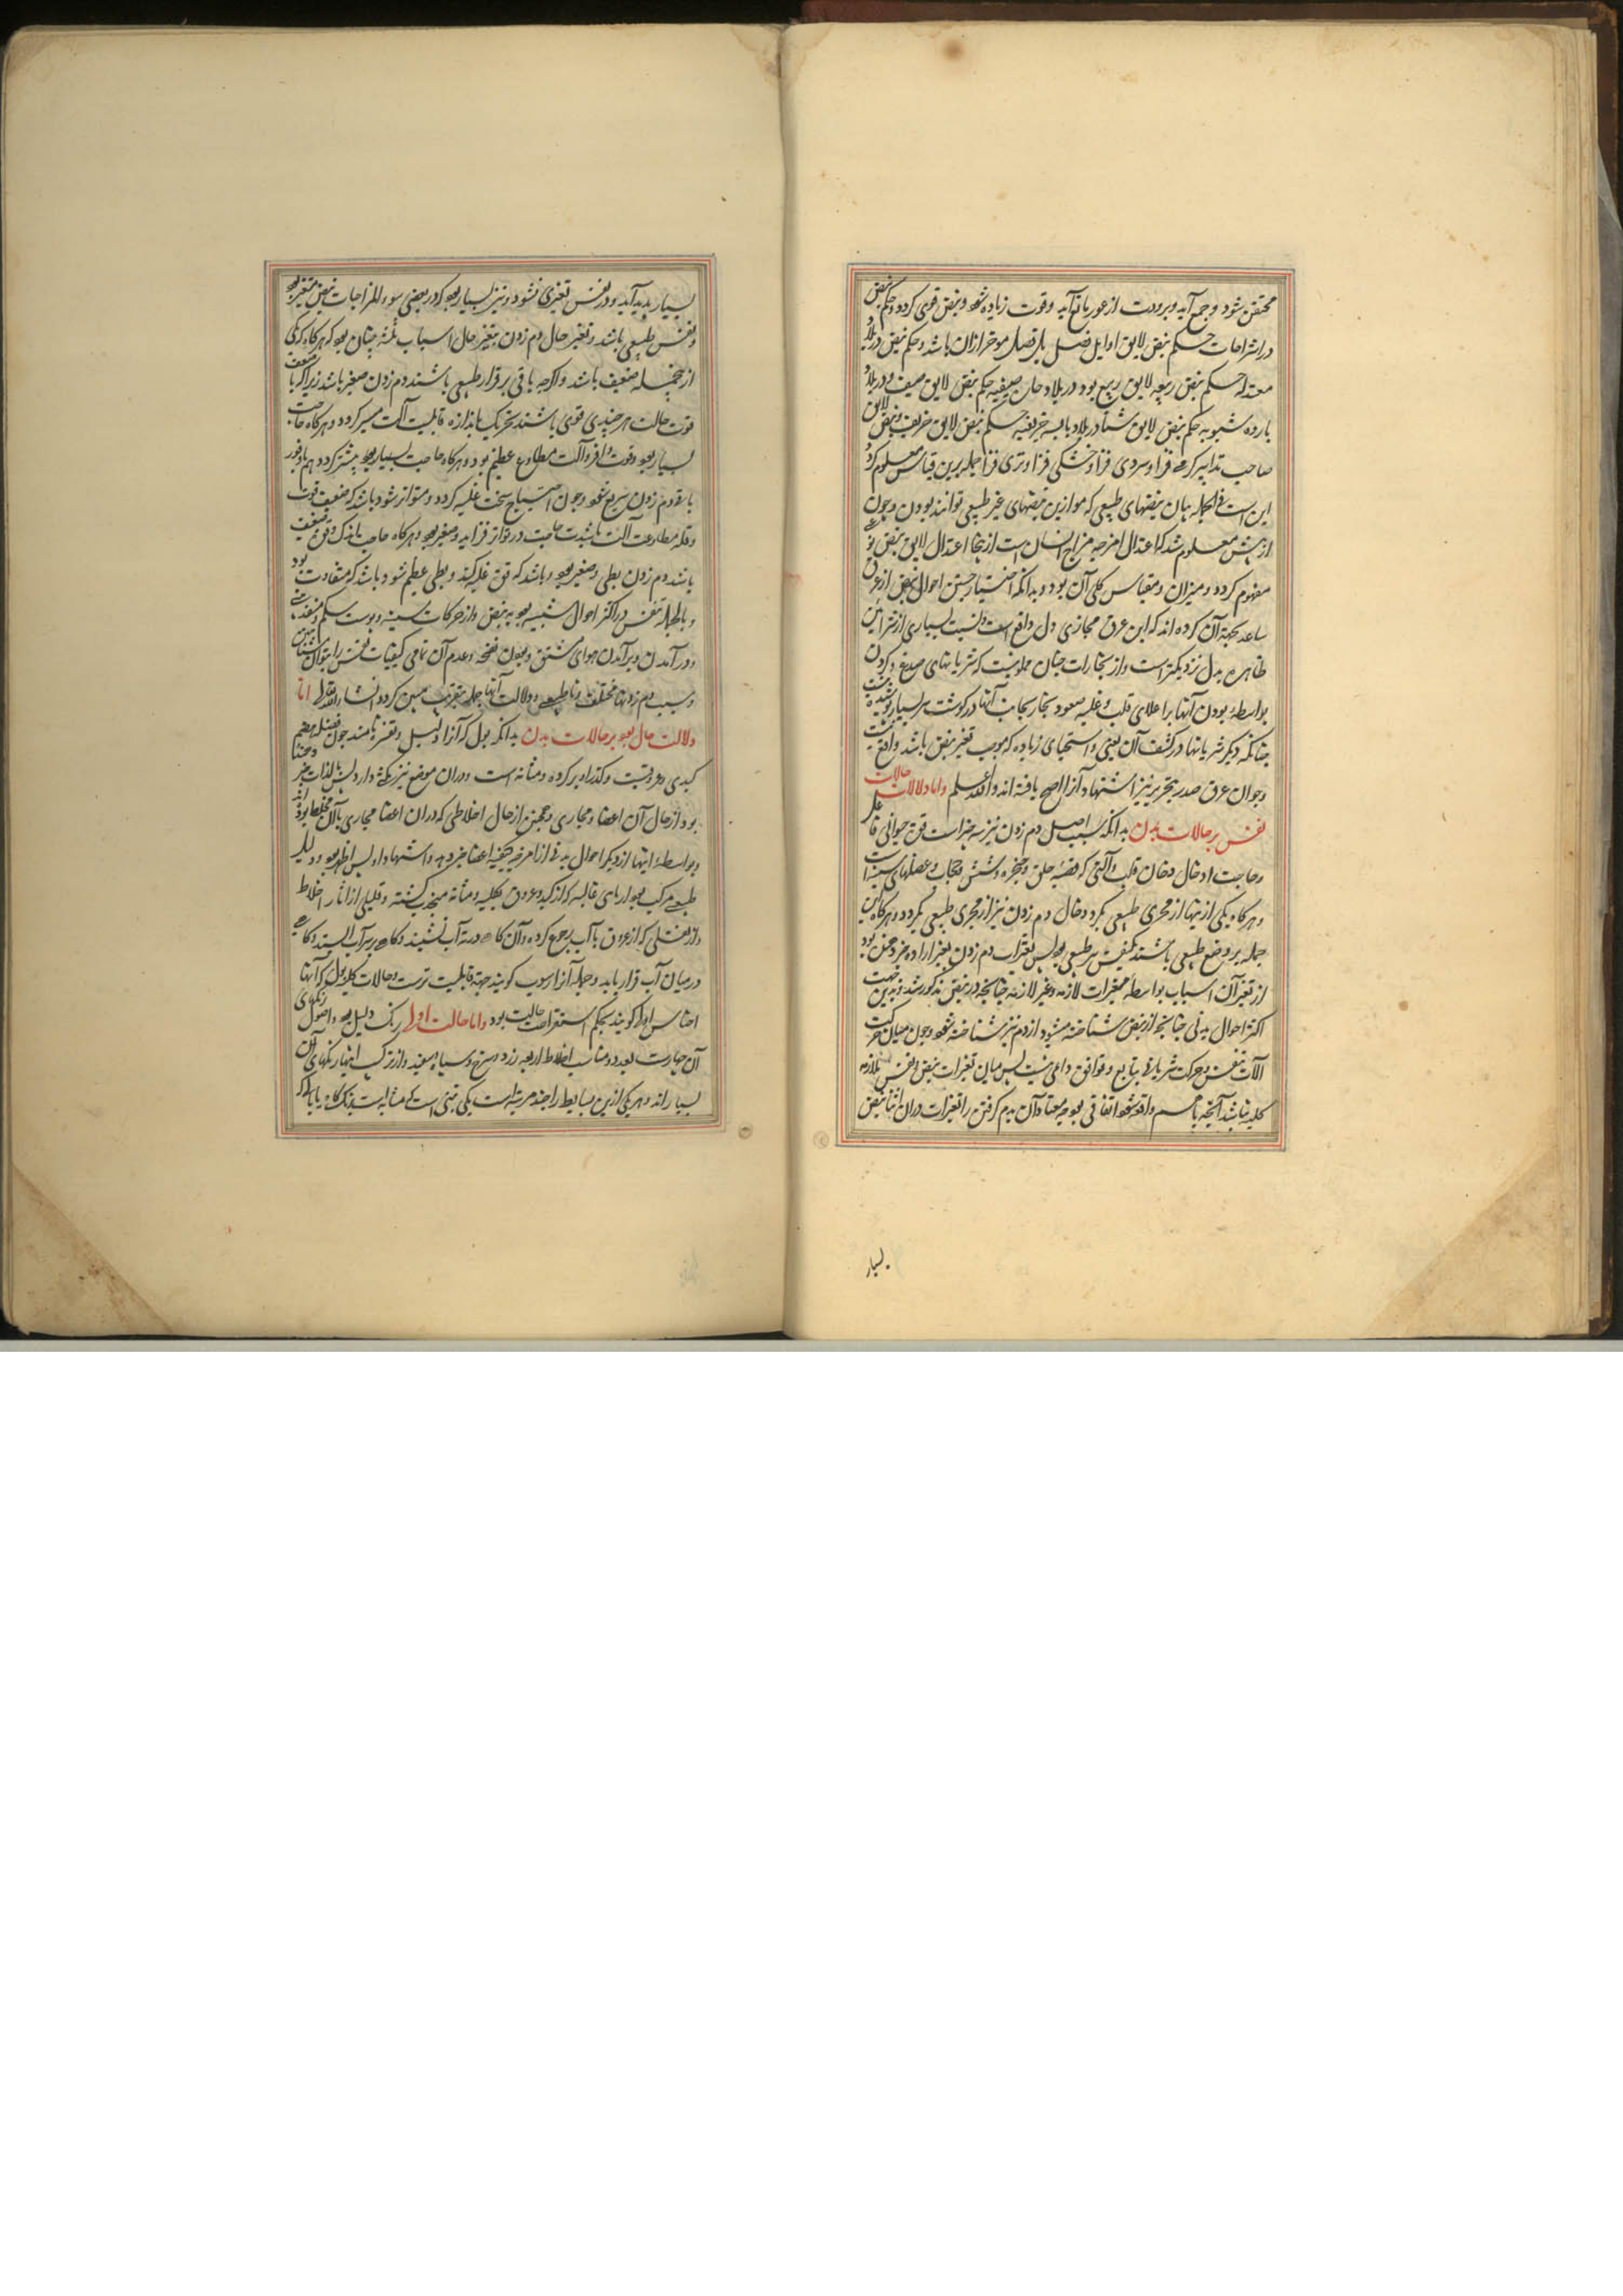 محتقن شود و جمع آید و برودت از غور باع آید و قوت زیاده شود و نبض قوی کردد و حکم نبض
در استراحات حکم نبض لایق اوایل فصل یا فصل موخر ازان باشد و حکم نبض در بلاد
معتدله حکم نبض ربیعیه لایق ربیع بود در بلاد حاره صیفیه حکم نبض لایق صیف و در بلاد
بارده شتویه حکم نبض لایق شتا و در بلاد یابسه خریفیه حکم نبض لایق خریف و نبض لایق
صاحب تدابیر کرمی فزا و سردی فزا و خشکی فزا و تری فزا جمله برین قیاس معلوم کردد
این است فی الجمله بیان نبضهای طبیعی که موازین نبضهای غیر طبیعی توانند بودن و چون
از پیش معلوم شد که اعتدال امزجه مزاج انسان است از اینجا اعتدال لایق نبض نیز
مفهوم کردد و میزان و مقیاس کلی آن بود و بدانکه اختیار جستن احوال نبض از عرق
ساعد بجهة آن کرده اند که این عرق محاذی دل واقع است و نسبت بسیاری از شرائین
ظاهره بدل نزدیکتر است و از بخارات چنان مملو نیست که شریانهای صدغ و کردن
بواسطهٔ بودن آنها بر اعلای قلب و غلبه صعود بخار بجانب آنها و در کوشت بسیار پوشیده نیست
چنانکه دیکر شریانها در کشف آن یعنی و استحیای زیاده که موجب تغیر نبض باشد واقع نیست
و چون عرق صدر بتحریر نیز اشتهاد آنرا اصح یافته اند والله اعلم و اما دلالات حالات
نفس بر حالات بدن بدانکه سبب اصل دم زدن نیز سه چیز است قوة حیوانی فاعل
و حاجت ادخال دخان قلب و آلتی که قصبه حلق و حنجره و شش و حجاب و عضلهای سینه است
و هر کاه یکی از ینها از مجری طبیعی بکردد حال دم زدن نیز از مجری طبیعی بکردد و هر کاه این
جمله بر وضع طبیعی باشند تنفس نیز طبیعی بود پس تغیرات دم زدن بغیر اراده مرد همین بود
از تغیر آن اسباب بواسطهٔ مغیرات لازمه و غیر لازمه چنانچه در نبض مذکور شد و بدین جهت
اکثر احوال بدنی چنانچه از نبض شناخته میشود از دم نیز شناخته شود و چون میان حرکت
آلات تنفس و حرکت شریان تتابع و توافق دائمی نیست پس میان تغیرات نبض و نفس ملازمه
کلیه نباشد آنچه باهم واقع شود اتفاقی بود معتاد آن بدم کرفتن را تغیرات دران اثنا نبض
بسیار
بسیار پدید آید و در نفس تغیری نشود و نیز بسیار بود که در بعضی سوء المزاجات نبض متغیر بود
و نفس طبیعی باشد و تغیر حال دم زدن بتغیر حال اسباب ثلثه چنان بود که هر کاه که یکی
از جمله ضعیف باشد و اکرچه باقی برقرار طبیعی باشند دم زدن صغیر باشد زیرا که با ضعف
قوت حالت هر چندی قوی باشند تحریک باندازه قابلیت آلت میسر کردد و هر کاه حاجت
بسیار بود و قوت وافر و آلت مطاوع عظیم بود و هر کاه حاجت بسیار بود بیشتر کردد هم با وفور
باشد دم زدن سریع شود و چون احتیاج سخت غلبه کردد و متواتر شود باشد که ضعف قوت
و قلة مطاوعت آلت با شدت حاجت در تواتر فزاید و صغیر بود و هر کاه حاجت باندک و قوت ضعیف
باشد دم زدن بطی و صغیر بود و باشد که قوت غلبه کند و بطی عظیم شود و باشد که متفاوت بود
و بالجمله تنفس در اکثر احوال شبیه بود به نبض و از حرکات سینه و پوست شکم و منفذ بینی
و در آمدن و برآمدن هوای مستنشق و بودن نفخه و عدم آن تمامی کیفیات تنفس را بتوان شناختن
و سبب دم زدنهای مختلف غیر طبیعی و دلالت آنها جمله بتقریب مبین کردد انشاء الله تعالی اما
دلالت حال بول بر حالات بدن بدانکه بول که آنرا دلیل و تفسره نامند چون فضله هضم
کبدی و عروقیست و کذر او بر کرده و مثانه است و دران موضع نیز مکثی دارد پس بالذات مخبر
بود از حال آن اعضا و مجاری و همچنین از حال اخلاطی که دران اعضا و مجاری بآن مختلط بوده اند
و بواسطهٔ اینها از دیکر احوال بدنی از امزجه و کیفیة اعضا خبر دهد و استشهاد او بس اظهر بود و دلیل
طبیعی مرکب بود از مای غالبه که از کبد و عروق بکلیه و مثانه منجذب کشته و قلیلی از آثار اخلاط
و از ثفلی که از عروق با آب رجوع کرده و آن کاه در ته آب نشیند و کاه بر سر آب ایستد و کاهی
در میان آب قرار یابد و جمله آنرا رسوب کویند جهة قابلیت ترست و حالات کلیه بول که آنها
اجناس ادله کویند بحکم استقرا هشت حالت بود و اما حالت اول رنک دلیل بود و اصول رنکهای
آن چهارست بعدد و مناسب اخلاط اربعه زرد و سرخ و سیاه و سفید و از ترکیب اینها رنکهای آن
بسیارند و هر یکی ازین بسایط را چند مرتبه است یکی تبنی است که مشابه است برنک کاه یا بآبی که